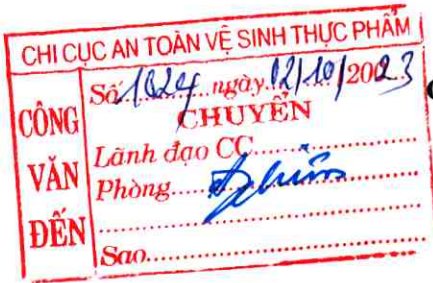 CHI CỤC AN TOÀN VỆ SINH THỰC PHẨM
CÔNG VĂN ĐẾN
Số 1024 ngày 02/10/2023
CHUYỂN
Lãnh đạo CC
Phòng
Sao